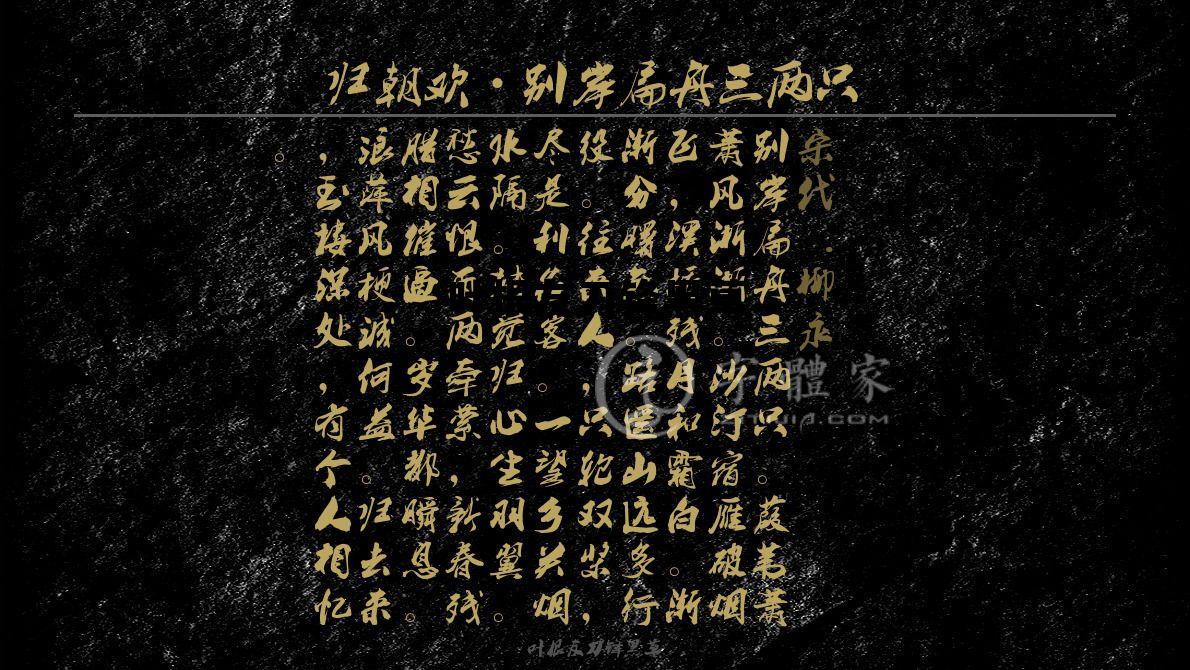 归朝欢·别岸扁舟三两只
宋代·柳永
别岸扁舟三两只。葭苇萧
萧风淅淅。沙汀宿雁破烟
飞，溪桥残月和霜白。渐
渐分曙色。路遥山远多行
役，往来人，只轮双桨，
尽是利名客。一望乡关烟
水隔。转觉归心生羽翼。
愁云恨雨两牵萦，新春残
腊相催逼。岁华都瞬息。
浪萍风梗诚何益。归去来
，玉楼深处，有个人相忆
。
字體家
ZITIJIA.COM
叶根友刀锋黑草